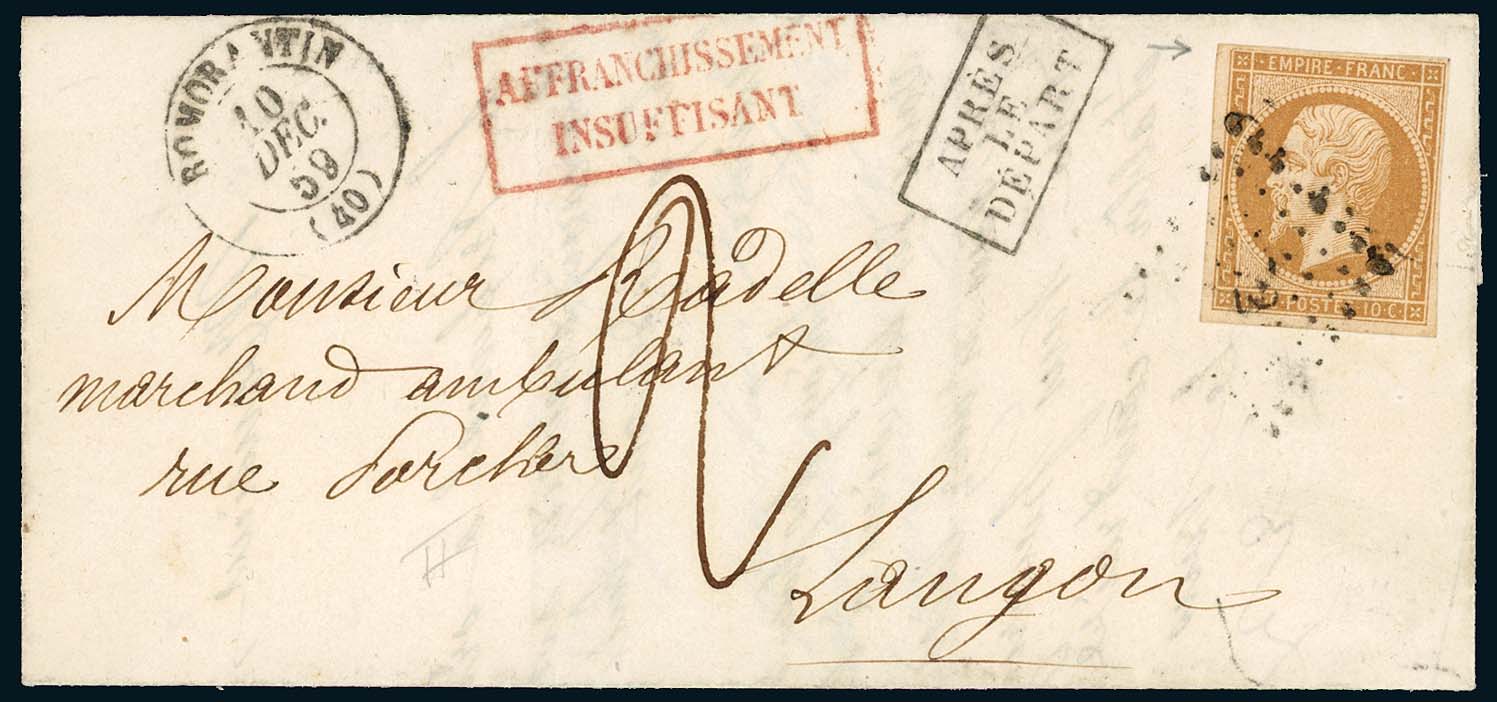 ROMORANTIN
10
DEC.
59
(40)
AFFRANCHISSEMENT
INSUFFISANT
APRÈS
LE
DÉPART
EMPIRE-FRANC
POSTES 10·C·
Monsieur Radelle
marchand ambulant
rue Porchère
2
Langon